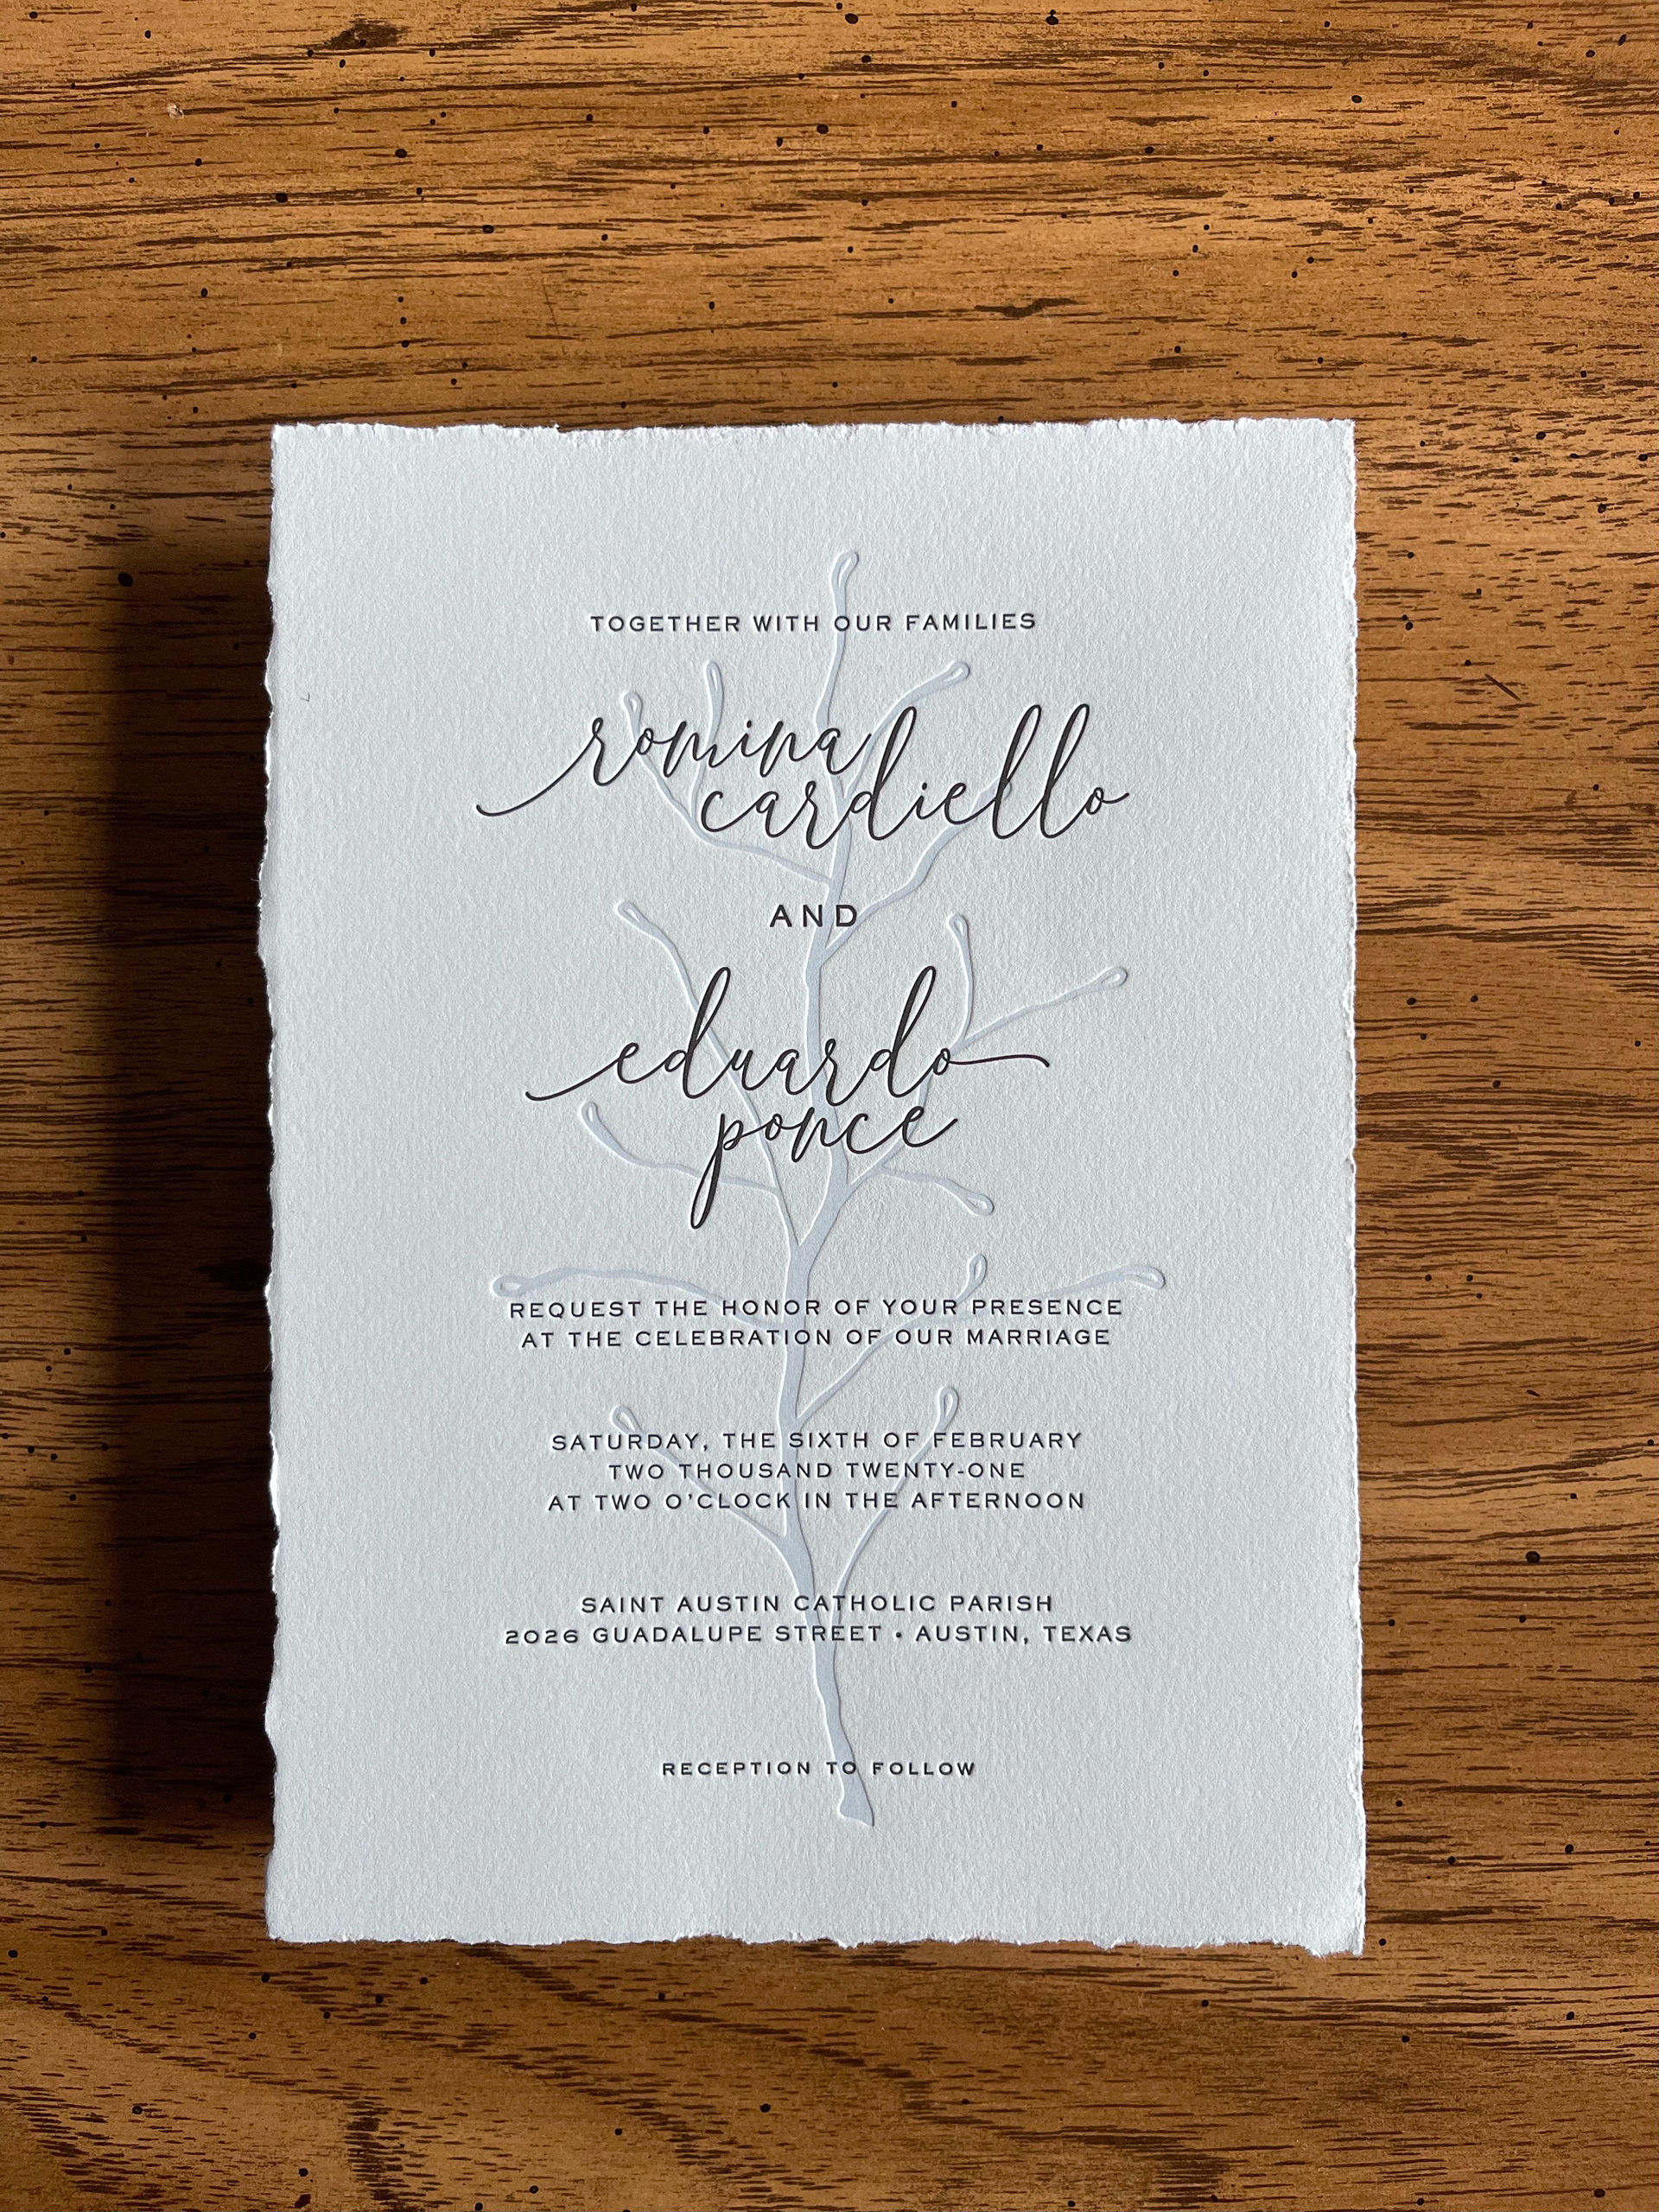 TOGETHER WITH OUR FAMILIES
romina
cardiello
AND
eduardo
ponce
REQUEST THE HONOR OF YOUR PRESENCE
AT THE CELEBRATION OF OUR MARRIAGE
SATURDAY, THE SIXTH OF FEBRUARY
TWO THOUSAND TWENTY-ONE
AT TWO O'CLOCK IN THE AFTERNOON
SAINT AUSTIN CATHOLIC PARISH
2026 GUADALUPE STREET • AUSTIN, TEXAS
RECEPTION TO FOLLOW